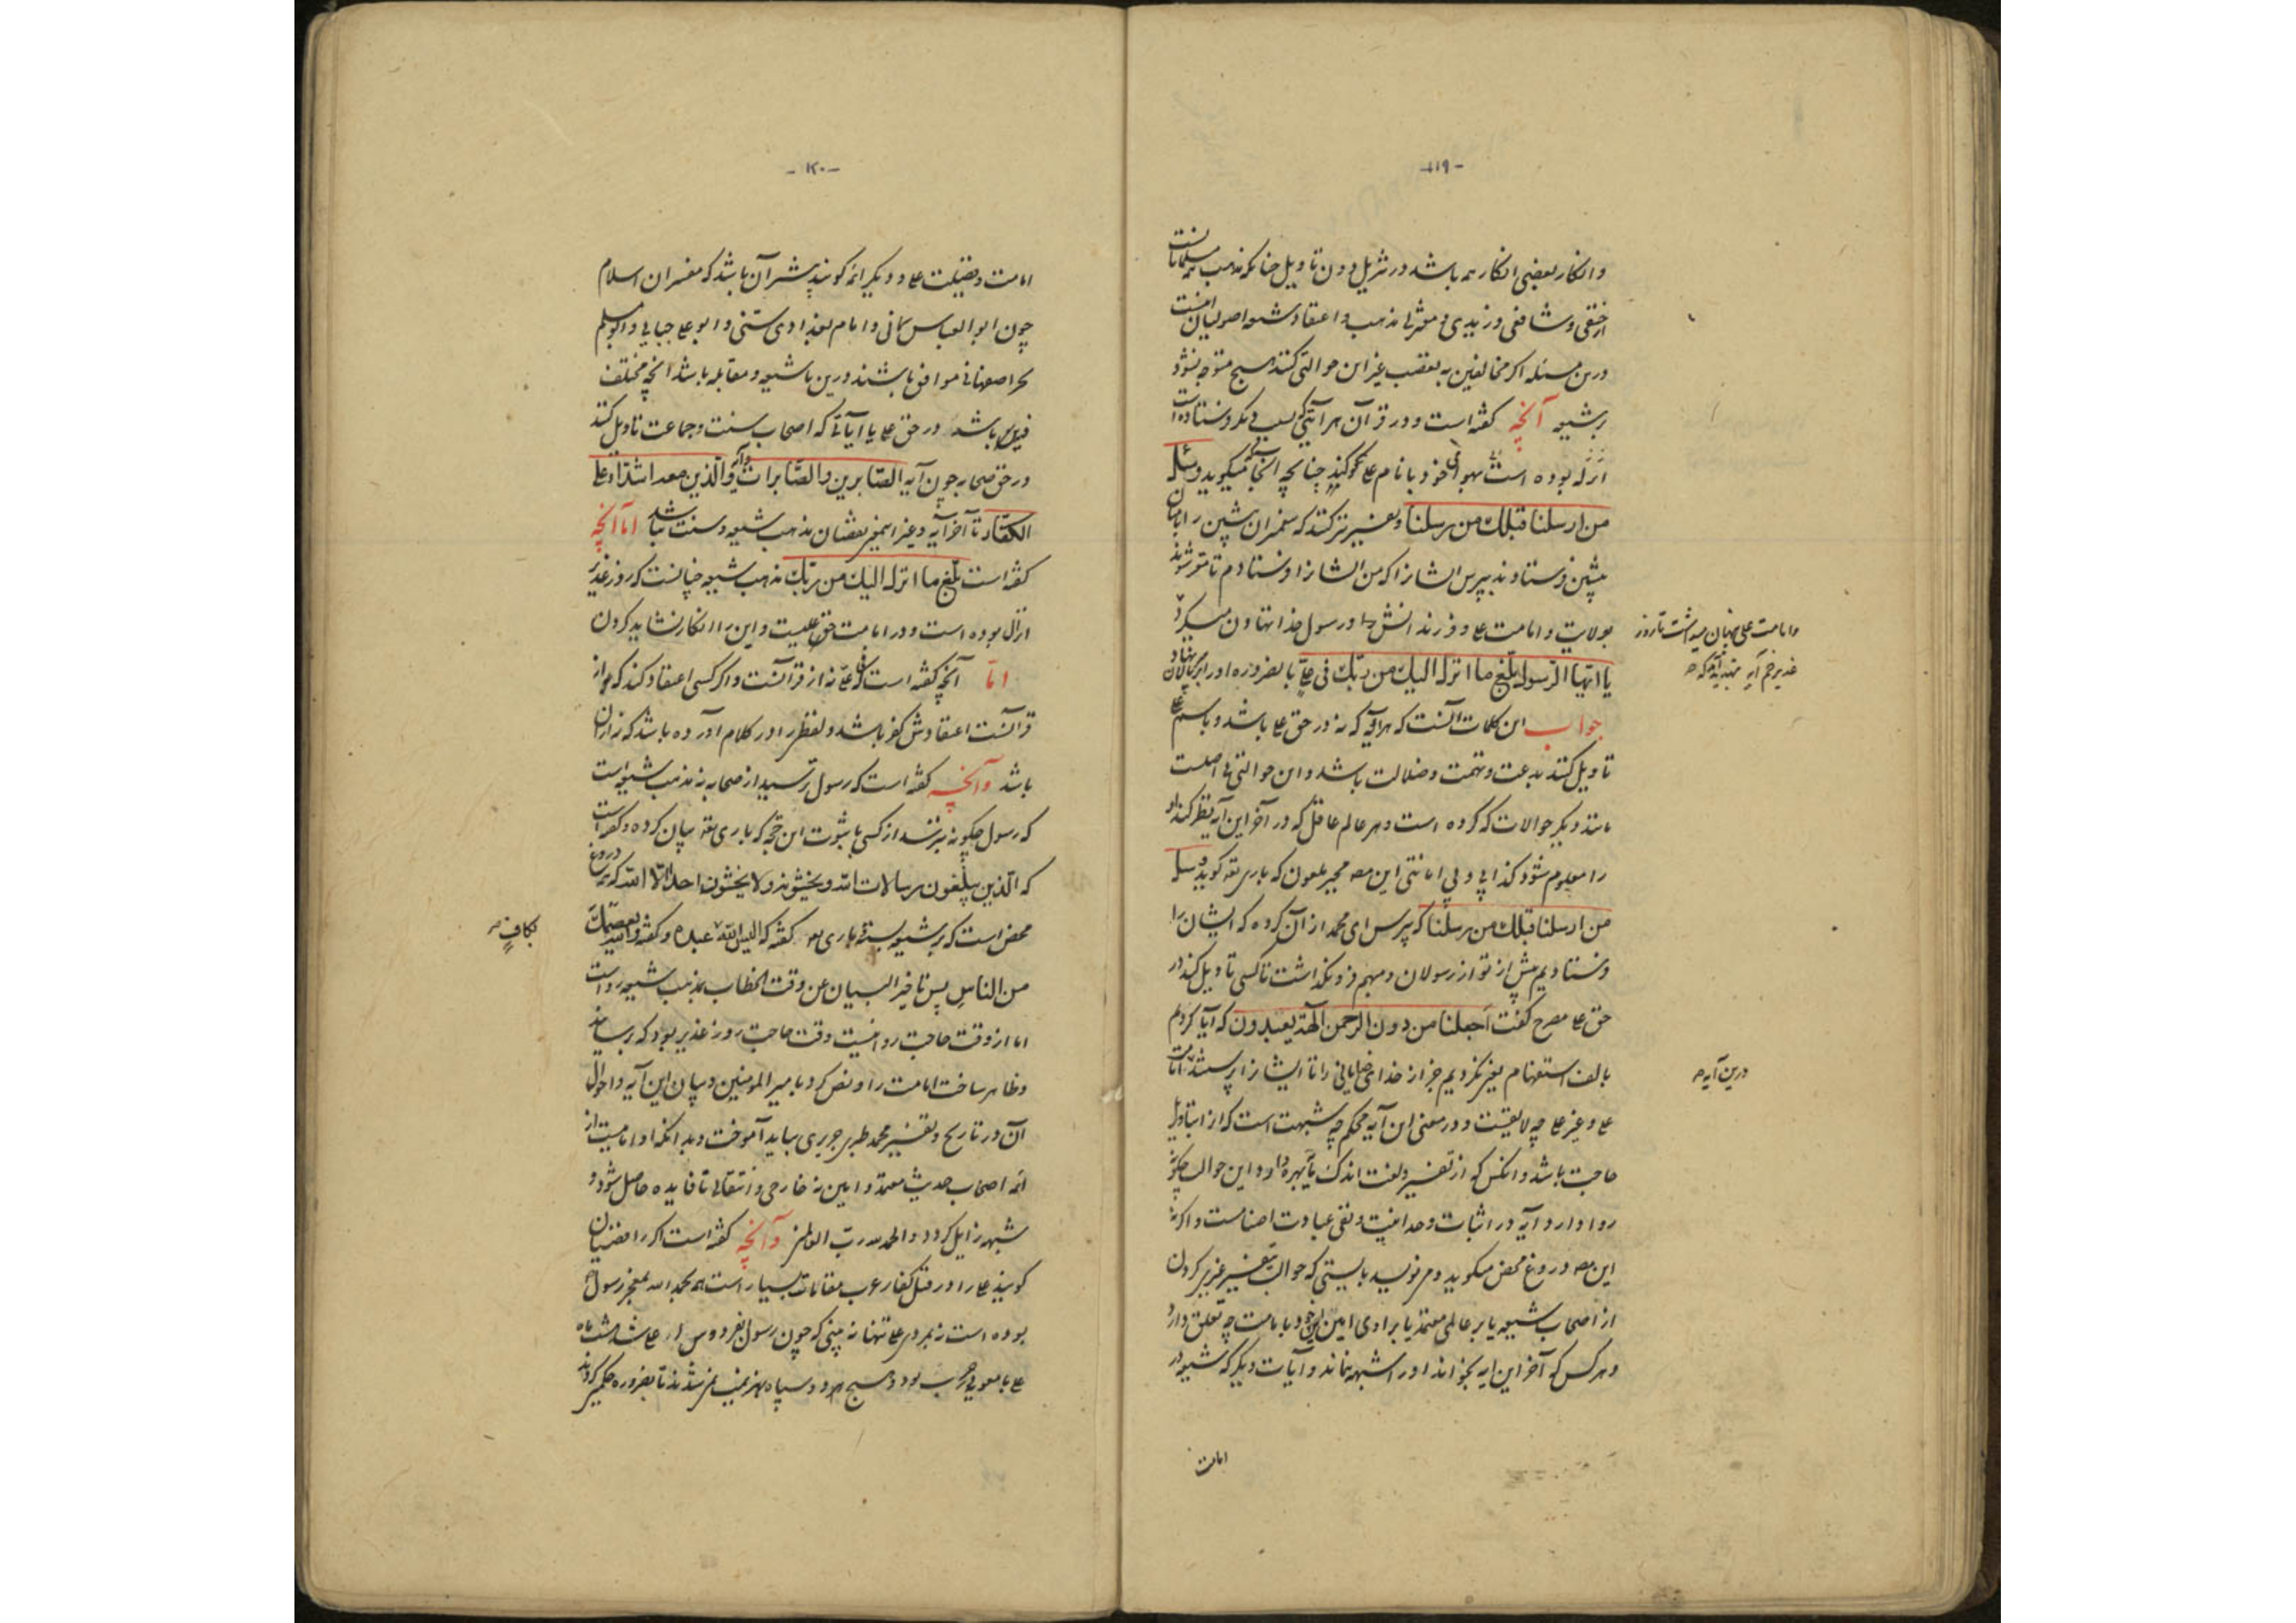 -١١٩-
وانکار بعضی انکار همه باشد در تنزیل دون تاویل چنانکه مذهب همه مسلمانانست
از حنفی و شافعی و زیدی و معتزلی مذهب و اعتقاد شیعه اصولیان اینست
درین مسئله اگر مخالفین به تعصب غیر این حوالتی کنند هیچ متوجه نشود
بر شیعه آنچه گفته است و در قرآن هر آیتی که بسببی دیگر فرستاده است
انزله بوده است بهوای خود با نام علی گویند چنانچه اینجا میگوید وسئل
من ارسلنا قبلك من رسلنا وتفسیر نیز کنند که پیغمبران پیشین را بامتان
پیشین فرستادند بپرس ایشانرا که من ایشانرا فرستادم تا مقر شوند
بولایت و امامت علی و فرزندانش و رسول خدا تهاون میکرد
یا ایها الرسول بلغ ما انزل الیك من ربك فی علی بالضروره او را بر پالان
جواب این کلمات آنست که هر آیه که نه در حق علی باشد و باسم علی
تاویل کنند بدعت و تهمت و ضلالت باشد و این حوالتی بی اصلست
مانند دیگر حوالات که کرده است و هر عالم عاقل که در آخر این آیه نظر کند او
را معلوم شود کذابی و بی امانتی این مجبر ملعون که باری تعه گوید وسئل
من ارسلنا قبلك من رسلنا که بپرس ای محمد از آن گروه که ایشان را
فرستادیم پیش از تو از رسولان و مبهم فرونگذاشت تا کسی تاویل کند در
حق علی مصرح گفت اجعلنا من دون الرحمن الهة یعبدون که آیا کردیم
بالف استفهام یعنی نکردیم جز از خدای خدایانی را تا ایشانرا پرستند امامت
علی و غیر علی چه لایقیست و در معنی این آیه محکم چه شبهت است که از ابتاویل
حاجت باشد و آنکس که از تفسیر و لغت اندک مایه بهره دارد این حوالت چگونه
روا دارد و آیه در اثبات وحدانیت و نفی عبادت اصنامست و اگر نه
این دروغ محض میگوید و مینویسد بایستی که حوالت بتفسیر عزیز کردن
از اصحاب شیعه یا بر عالمی معتمد یا براوی امین این خود بامامت چه تعلق دارد
و هر کس که آخر این آیه بخواند او را شبهه نماند و آیات دیگر که شیعه در
امامت
وامامت علی پنهان میداشت تا روز
غدیر خم آیه تهدید آمد که
درین آیه
-١٢٠-
امامت و فضیلت علی و دیگر ائمه گویند بیشتر آن باشد که مفسران اسلام
چون ابو العباس سمانی و امام بغدادی سنی و ابو علی جبایی و ابو مسلم
بحر اصفهانی موافق باشند درین با شیعه و مقابله باشد آنچه مختلف
فیه باشد در حق علی یا آیاتی که اصحاب سنت و جماعت تاویل کنند
در حق صحابه چون آیه الصابرین والصابرات وآیه والذین معه اشداء علی
الکفار تا آخر آیه و غیر اینها مذهب شیعه و سنت باشد اما آنچه
گفته است بلغ ما انزل الیك من ربك مذهب شیعه چنانست که روز غدیر
انزال بوده است و در امامت حق علیست و این را انکار نشاید کردن
اما آنچه گفته است که فی علی نه از قرآنست و اگر کسی اعتقاد کند که از
قرآنست اعتقادش کفر باشد و لفظ را در کلام آورده باشد که نه از آن
باشد وآنچه گفته است که رسول ترسید از صحابه نه مذهب شیعه است
که رسول چگونه بترسد از کسی با ثبوت این حجه که باری تعه بیان کرده و گفته است
که الذین یبلغون رسالات الله ویخشونه ولا یخشون احدا الا الله که دروغ
محض است که بر شیعه بسته باری تعه گفته که الیس الله عبده و گفته والله یعصمك
بکاف
من الناس پس تاخیر البیان عن وقت الخطاب بمذهب شیعه رواست
اما از وقت حاجت روا نیست وقت حاجت روز غدیر بود که برسانید
و ظاهر ساخت امامت را و نص کرد بامیر المومنین و بیان این آیه و احوال
آن در تاریخ و تفسیر محمد جریر طبری بباید آموخت و بدانکه او امامیست از
ائمه اصحاب حدیث معتمد و امین نه خارجی و انتقالی تا فایده حاصل شود و
شبهه زایل گردد والحمد لله رب العالمین وآنچه گفته است اگر رافضیان
گویند علی را در قتل کفار عرب مقامات بسیار است همه بحمد الله بمعجز رسول
بوده است نه بمردی علی تنها نه بینی که چون رسول بفردوس شد علی هشت ماه
علی با معویه در حرب بود و هیچ هر دو سپاه بهزیمت نمی شدند تا بضروره حکم کردند